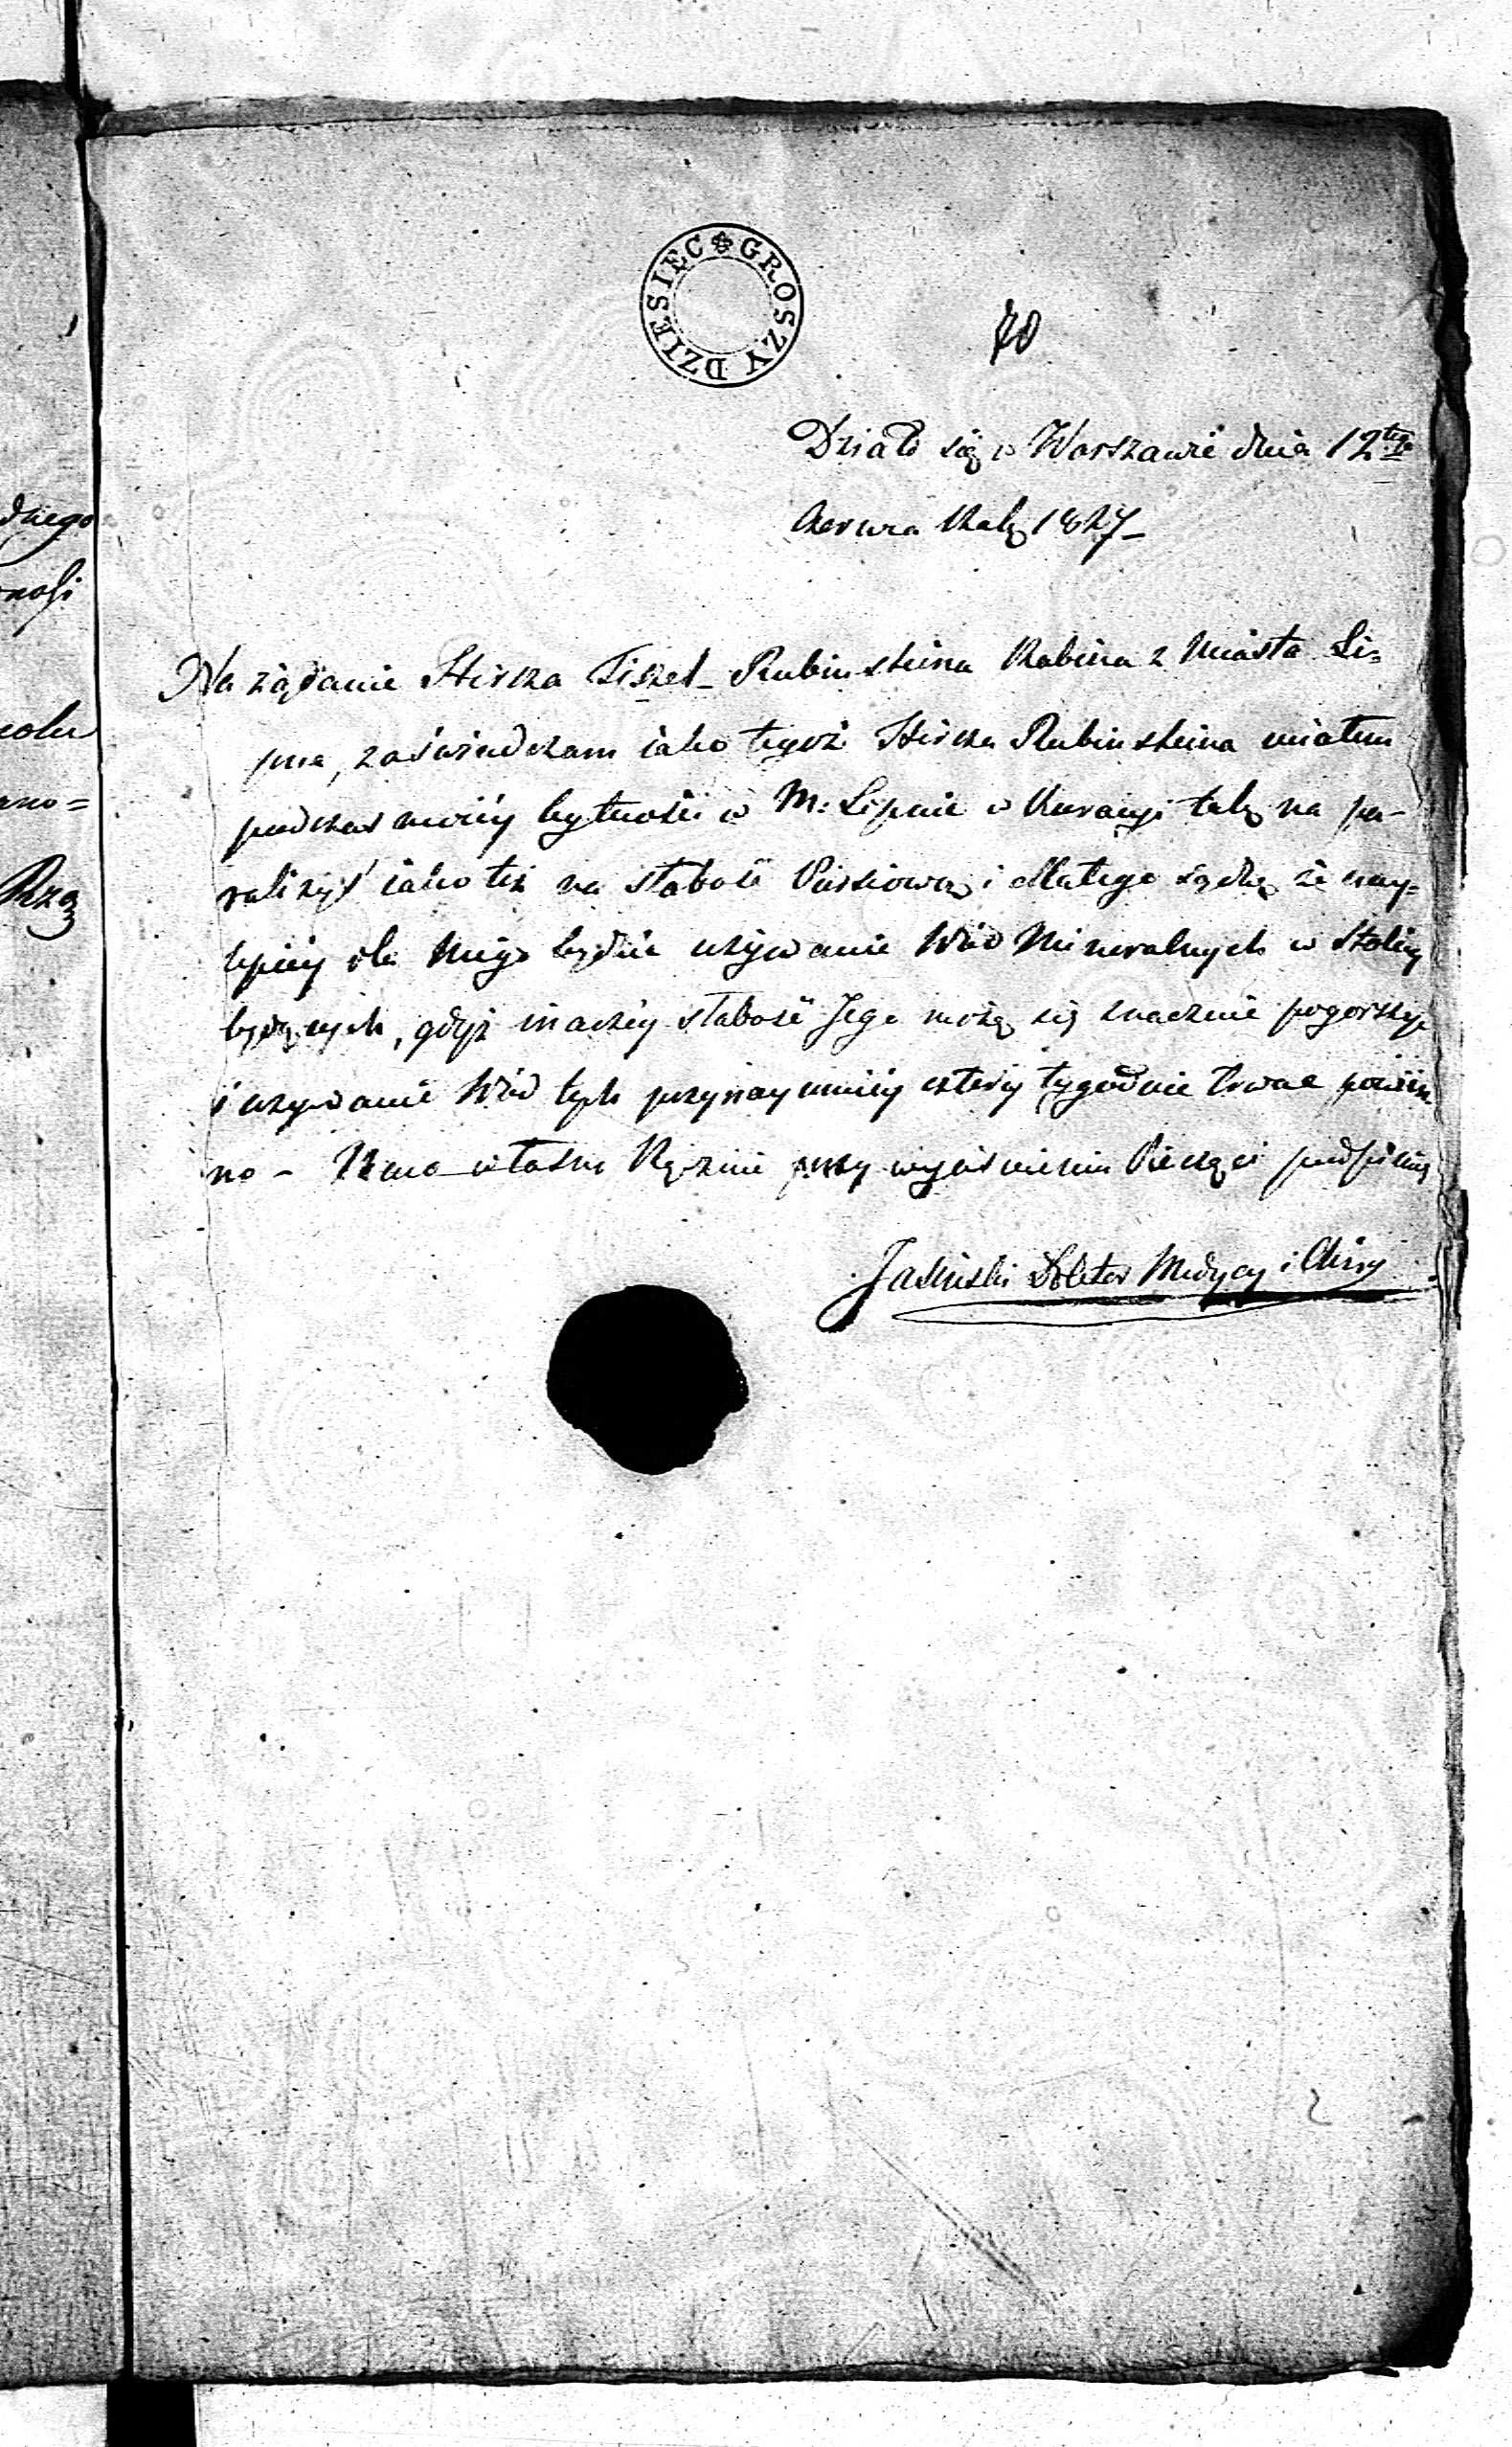 DZIESIĘC GROSZY
Działo się w Warszawie dnia 12tego
Czerwca Roku 1827 –
Na żądanie Hircka Fiszel – Rubinsteina Rabina z Miasta Li=
pna, zaświadczam iako tegoż Hircka Rubinsteina miałem
podczas moiéy bytności w M: Lipnie w Kuracyi tak na pa-
raliżyś iako też na słabość Piersiową i dlatego sądzę że nay=
lepiéy dla Niego będzie używanie Wód Mineralnych w Stolicy
będących, gdyż inaczéy słabość Jego może się znacznie pogorszyć
i używanie Wód tych przynaymniéy cztery tygodnie trwać powin
no – własno Ręcznie przy wyciśnieniu Pieczęci podpisuię
Jasiński Doktor Medycy i Chiry
dnego
nosi
ano=
Rzą